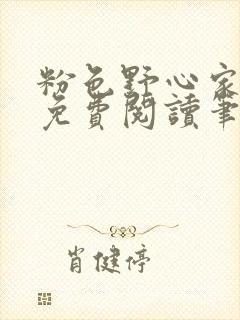 粉色野心家
免費閱讀筆
肖健停